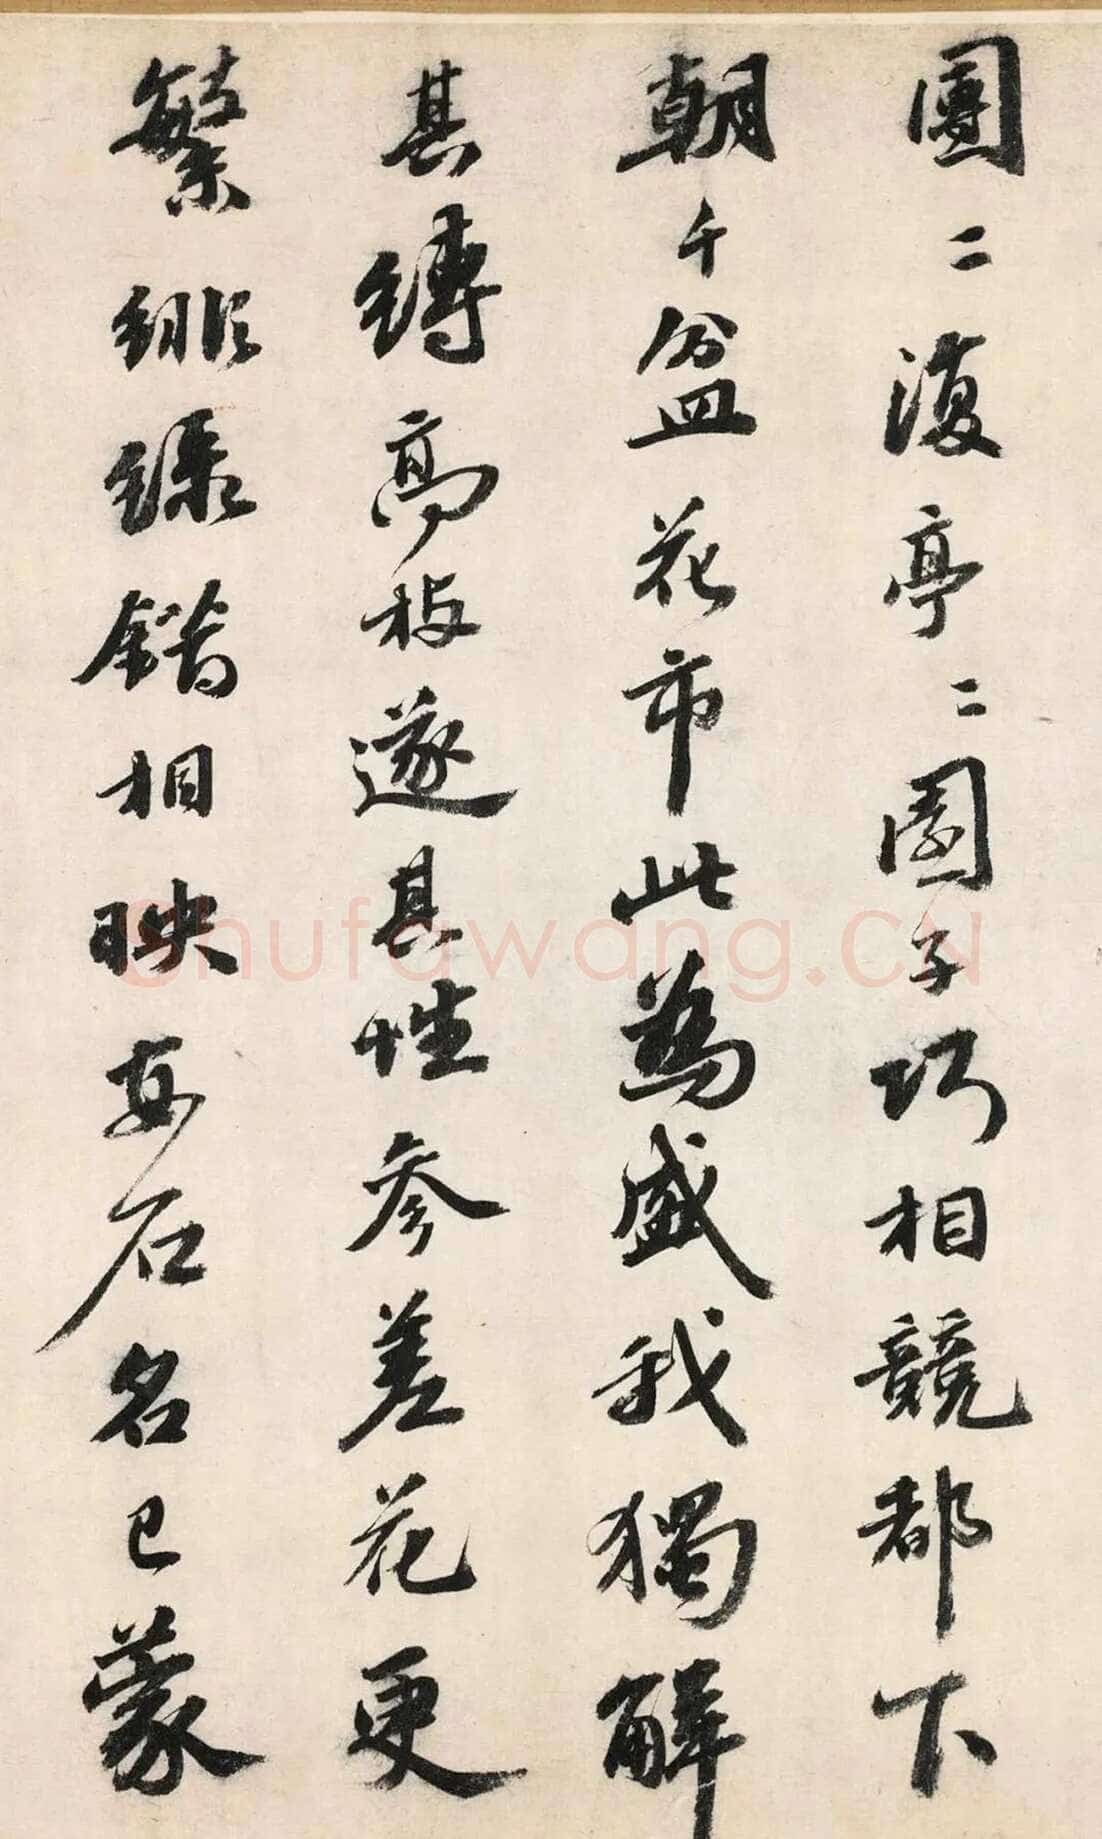 團〻復亭〻園子巧相競都下
朝千盆花市此為盛我獨解
其縛高枝遂其性參差花更
繁緋緑錯相映安石名已蒙
Shufawang.CN